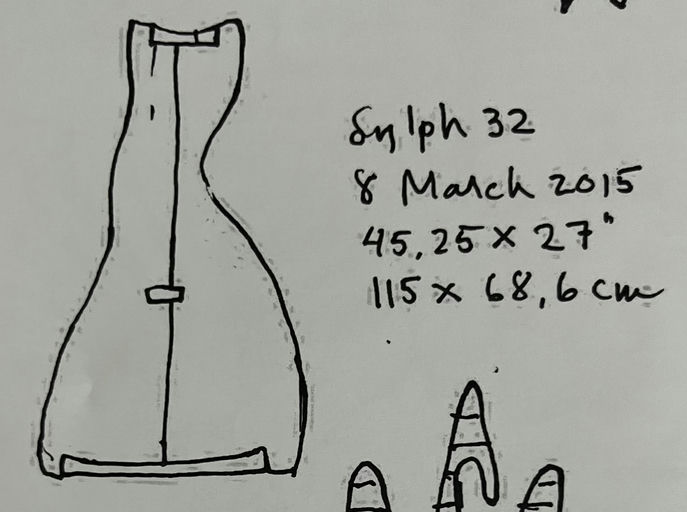 Sylph 32
8 March 2015
45.25 x 27"
115 x 68,6 cm